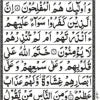 وَأُولَٰئِكَ هُمُ الْمُفْلِحُونَ إِنَّ
الَّذِينَ كَفَرُوا سَوَاءٌ عَلَيْهِمْ
ءَأَنْذَرْتَهُمْ أَمْ لَمْ تُنْذِرْهُمْ
لَا يُؤْمِنُونَ خَتَمَ اللَّهُ عَلَىٰ
قُلُوبِهِمْ وَعَلَىٰ سَمْعِهِمْ وَعَلَىٰ
أَبْصَارِهِمْ غِشَاوَةٌ وَلَهُمْ عَذَابٌ
عَظِيمٌ وَمِنَ النَّاسِ مَنْ يَقُولُ